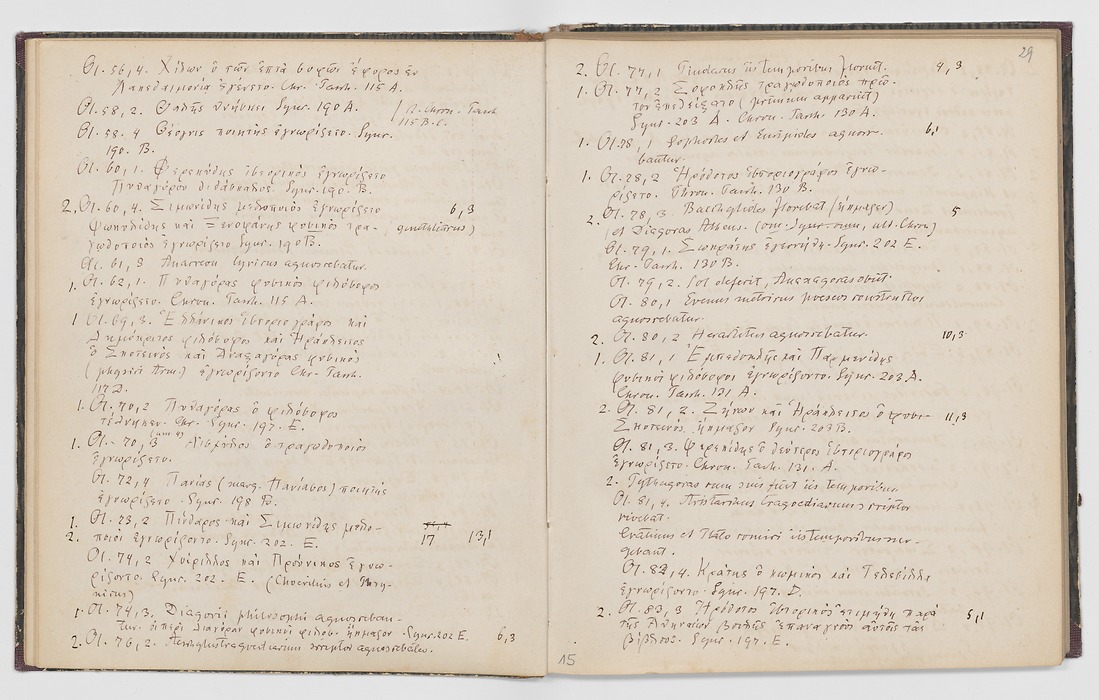 Ol. 56, 4. Χίλων ὁ τῶν ἑπτὰ σοφῶν ἔφορος ἐν
Λακεδαιμονίᾳ ἐγένετο. Chr. Pasch. 115 A.
Ol. 58, 2. Θαλῆς θνήσκει Sync. 190 A.
/ Chron. Pasch
115 B. C.
Ol. 58. 4 Θέογνις ποιητὴς ἐγνωρίζετο. Sync.
190. B.
Ol. 60, 1. Φερεκύδης ἱστορικὸς ἐγνωρίζετο
Πυθαγόρου διδάσκαλος. Sync. 190. B.
2. Ol. 60, 4. Σιμωνίδης μελοποιὸς ἐγνωρίζετο 6, 3
Φωκυλίδης καὶ Ξενοφάνης φυσικὸς τρα-
γῳδοποιὸς ἐγνωρίζετο Sync. 190 B.
Ol. 61, 3 Anacreon lyricus agnoscebatur.
1. Ol. 62, 1. Πυθαγόρας φυσικὸς φιλόσοφος
ἐγνωρίζετο. Chron. Pasch. 115 A.
1 Ol. 69, 3. Ἑλλάνικος ἱστοριογράφος καὶ
Δημόκριτος φιλόσοφος καὶ Ἡράκλειτος
ὁ Σκοτεινὸς καὶ Ἀναξαγόρας φυσικὸς
ἐγνωρίζοντο Chr. Pasch.
117 D.
1. Ol. 70, 2 Πυθαγόρας ὁ φιλόσοφος
τέθνηκεν. Chr. Sync. 197. E.
1. Ol. 70, 3 Αἰσχύλος ὁ τραγῳδοποιὸς
ἐγνωρίζετο.
Ol. 72, 4 Πανίας (marg. Πανίασος) ποιητὴς
ἐγνωρίζετο. Sync. 198 B.
1. Ol. 73, 2 Πίνδαρος καὶ Σιμωνίδης μελο-
2. ποιοὶ ἐγνωρίζοντο. Sync. 202. E. 17 13,1
Ol. 74, 2 Χοίριλλος καὶ Φρύνιχος ἐγνω-
ρίζοντο. Sync. 202. E. (Choerilus et Phry-
nichus)
1. Ol. 74, 3. Diagoras philosophi agnosceban-
tur. οἱ περὶ Διαγόραν φυσικοὶ φιλόσ. ἤκμαζον. Sync. 202 E. 6, 3
2. Ol. 76, 2. Aeschylus tragoediarum scriptor agnoscebatur.
29
2. Ol. 77, 1 Pindarus his temporibus floruit. 4, 3
1. Ol. 77, 2 Σοφοκλῆς τραγῳδοποιὸς πρῶ-
τον ἐπεδείξατο (primum apparuit)
Sync. 203 A. Chron. Pasch. 130 A.
1. Ol. 78, 1 Sophocles et Euripides agnosce- 6,1
bantur.
1. Ol. 78, 2 Ἡρόδοτος ἱστοριογράφος ἐγνω-
ρίζετο. Chron. Pasch. 130 B.
2. Ol. 78, 3. Bacchylides florebat (ἤκμαζεν) 5
et Diagoras Atheus.
Ol. 79, 1. Σωκράτης ἐγεννήθη. Sync. 202 E.
Chr. Pasch. 130 B.
Ol. 79, 2. Sol deficit, Anaxagoras obiit.
Ol. 80, 1 Evenus
agnoscebatur.
2. Ol. 80, 2 Heraclitus agnoscebatur. 10,3
1. Ol. 81, 1 Ἐμπεδοκλῆς καὶ Παρμενίδης
φυσικοὶ φιλόσοφοι ἐγνωρίζοντο. Sync. 203 A.
Chron. Pasch. 131 A.
2. Ol. 81, 2. Ζήνων καὶ Ἡράκλειτος ὁ 11,3
Σκοτεινὸς ἤκμαζον Sync. 203 B.
Ol. 81, 3. Φερεκύδης ὁ δεύτερος ἱστοριογράφος
ἐγνωρίζετο. Chron. Pasch. 131. A.
2. Pythagoras
Ol. 81, 4. Aristarchus tragoediarum scriptor
Cratinus et Plato comici his temporibus
Ol. 82, 4. Κράτης ὁ κωμικὸς καὶ Τελέσιλλα
ἐγνωρίζοντο. Sync. 197. D.
2. Ol. 83, 3 Ἡρόδοτος ἱστορικὸς ἐτιμήθη παρὰ 5,1
τῆς Ἀθηναίων βουλῆς ἐπαναγνοὺς αὐτοῖς τὰς
βίβλους. Sync. 197. E.
15